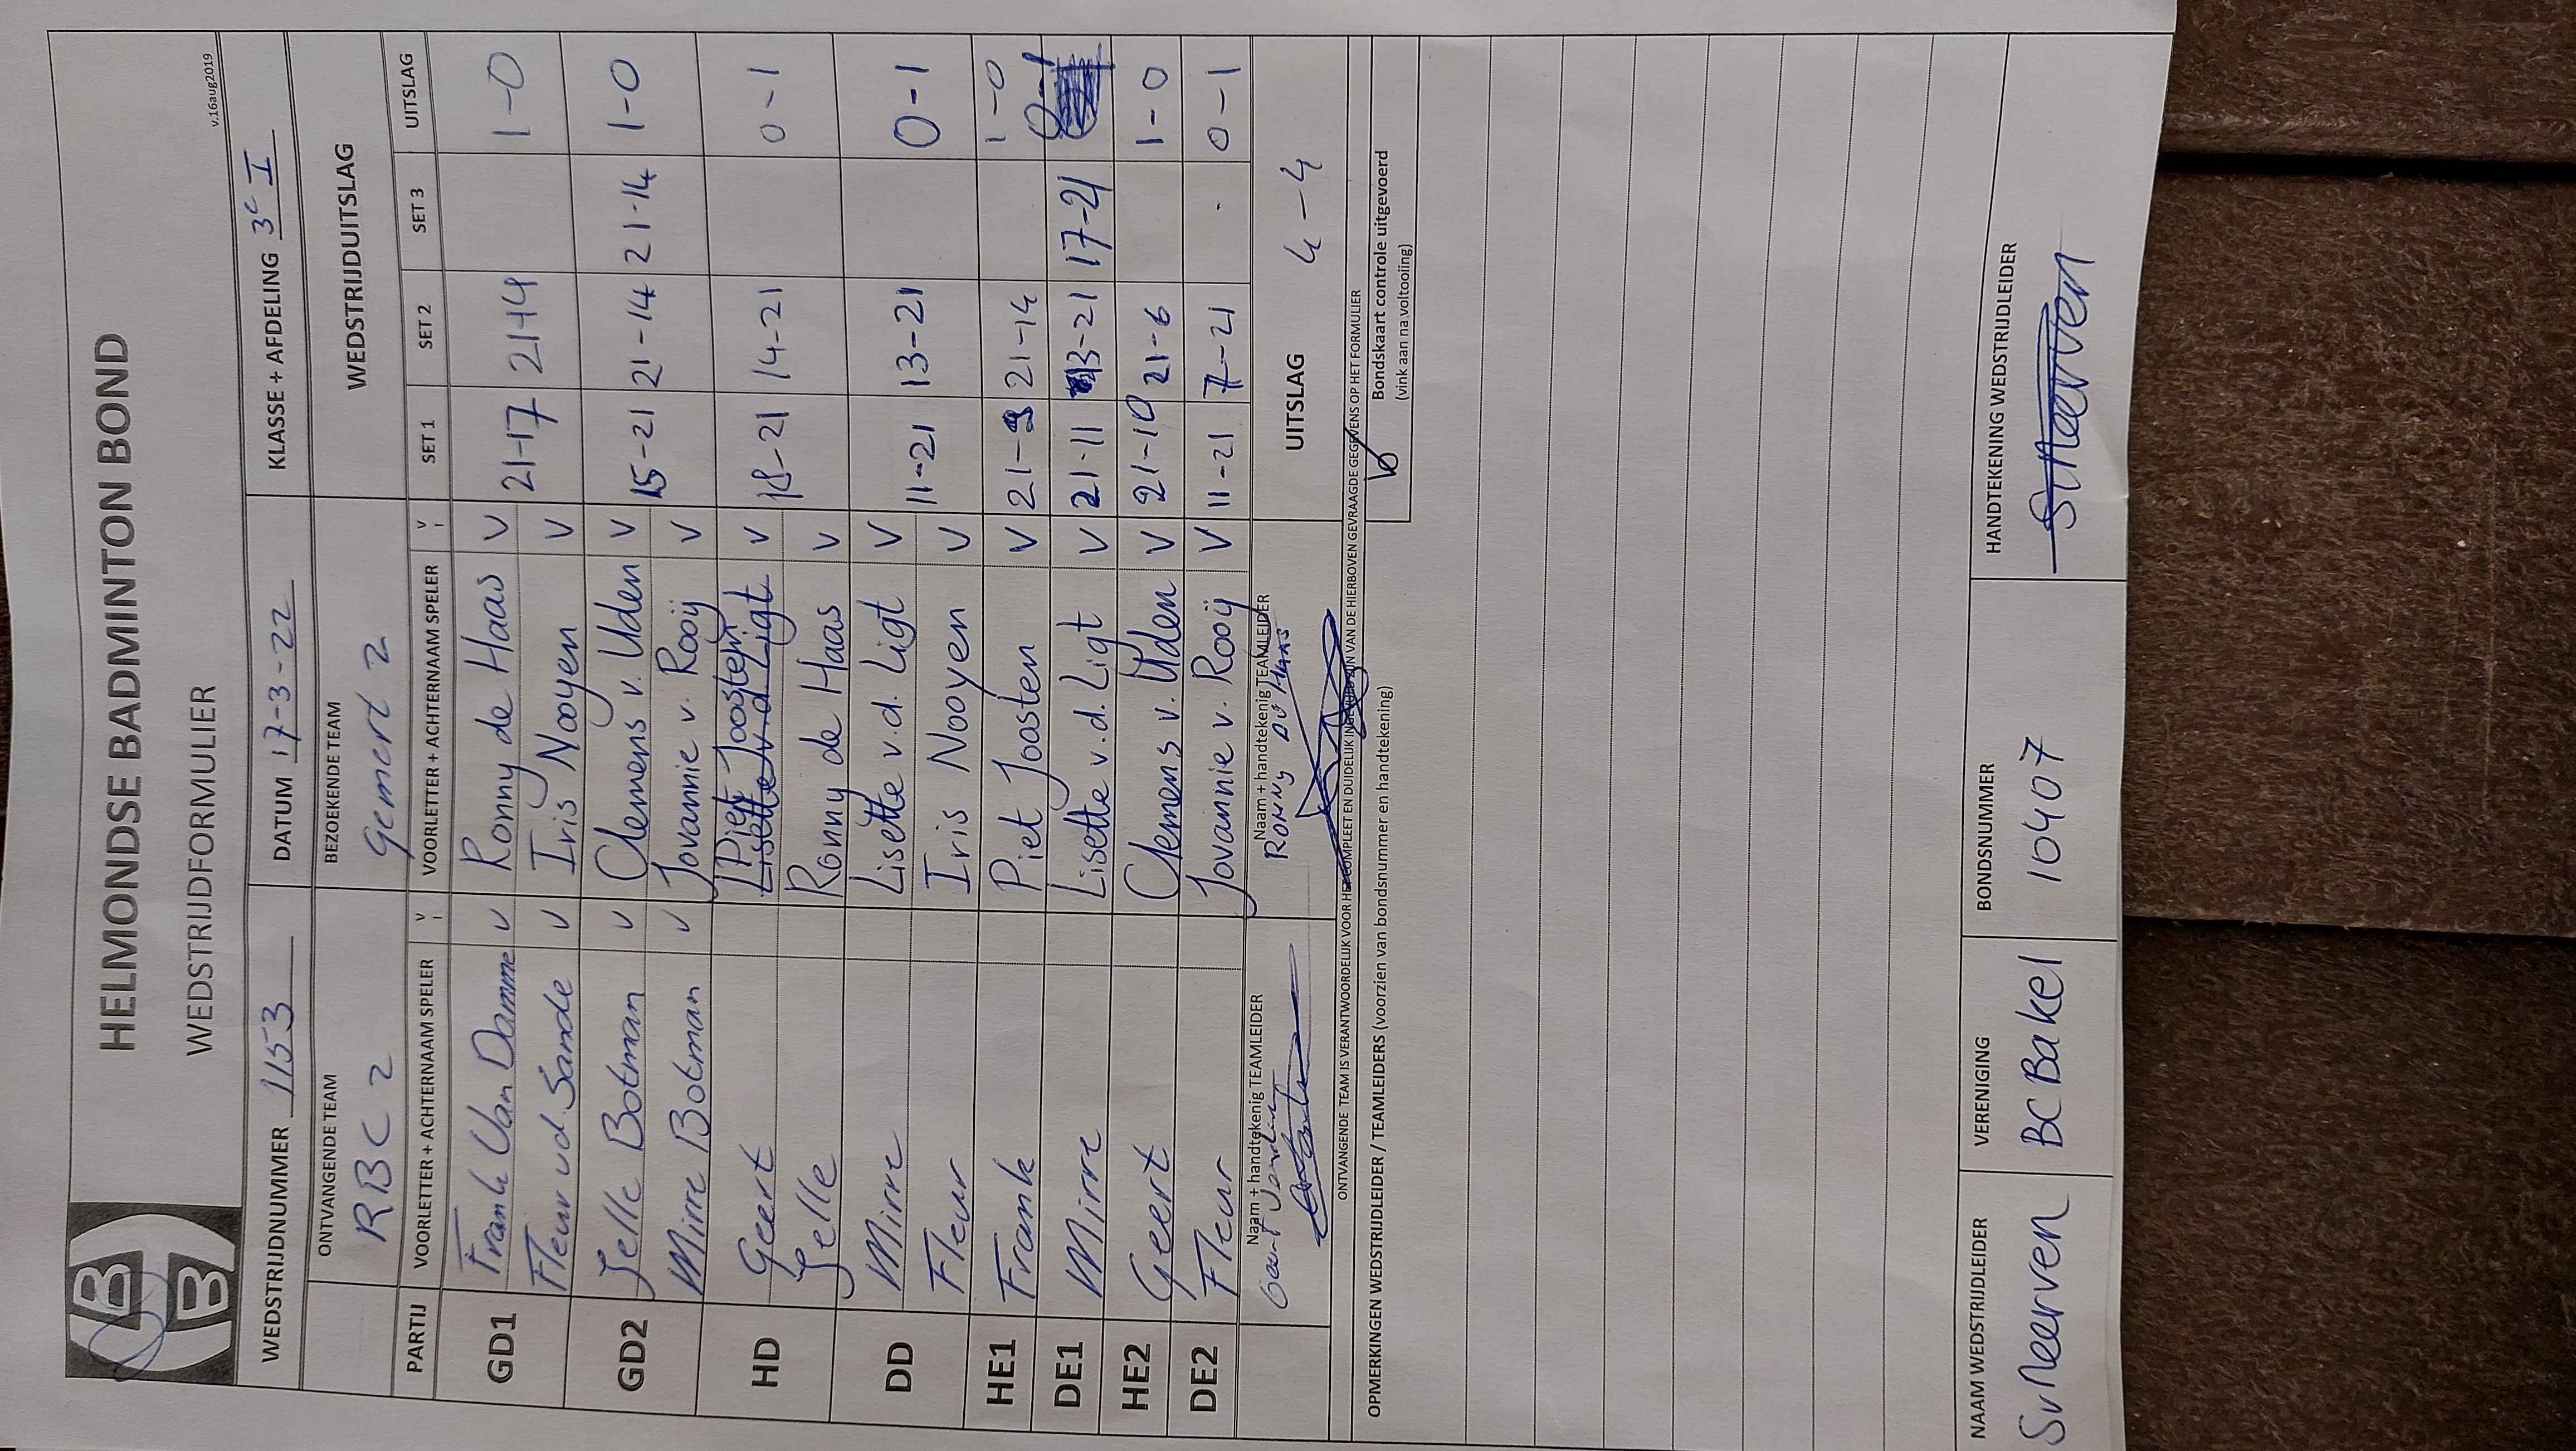 HELMONDSE BADMINTON BOND
WEDSTRIJDFORMULIER
v.16aug2019
WEDSTRIJDNUMMER 1153 DATUM 17-3-22 KLASSE + AFDELING 3c I
ONTVANGENDE TEAM BEZOEKENDE TEAM WEDSTRIJDUITSLAG
RBC 2 Gemert 2
PARTIJ VOORLETTER + ACHTERNAAM SPELER V VOORLETTER + ACHTERNAAM SPELER V SET 1 SET 2 SET 3 UITSLAG
GD1 Frank Van Damme V Ronny de Haas V 21-17 21-14 1-0
Fleur vd Sande V Iris Nooyen V
GD2 Jelle Botman V Clemens v. Uden V 15-21 21-14 21-14 1-0
Mirre Botman V Jovannie v. Rooij V
HD Geert Piet Joosten V 18-21 14-21 0-1
Lisette v.d. Ligt
Jelle Ronny de Haas V
DD Mirre Lisette v.d. Ligt V 11-21 13-21 0-1
Fleur Iris Nooyen V
HE1 Frank Piet Joosten V 21- 21-14 1-0
DE1 Mirre Lisette v.d. Ligt V 21-11 13-21 17-21 0-1
HE2 Geert Clemens v. Uden V 21-10 21-6 1-0
DE2 Fleur Jovannie v. Rooij V 11-21 7-21 0-1
Naam + handtekenig TEAMLEIDER Naam + handtekenig TEAMLEIDER UITSLAG 4-4
Geert RONNY DE HAAS
ONTVANGENDE TEAM IS VERANTWOORDELIJK VOOR HET COMPLEET EN DUIDELIJK INGEVULD ZIJN VAN DE HIERBOVEN GEVRAAGDE GEGEVENS OP HET FORMULIER
OPMERKINGEN WEDSTRIJDLEIDER / TEAMLEIDERS (voorzien van bondsnummer en handtekening) V Bondskaart controle uitgevoerd
(vink aan na voltooiing)
NAAM WEDSTRIJDLEIDER VERENIGING BONDSNUMMER HANDTEKENING WEDSTRIJDLEIDER
SvNeerven BC Bakel 10407 SvNeerven